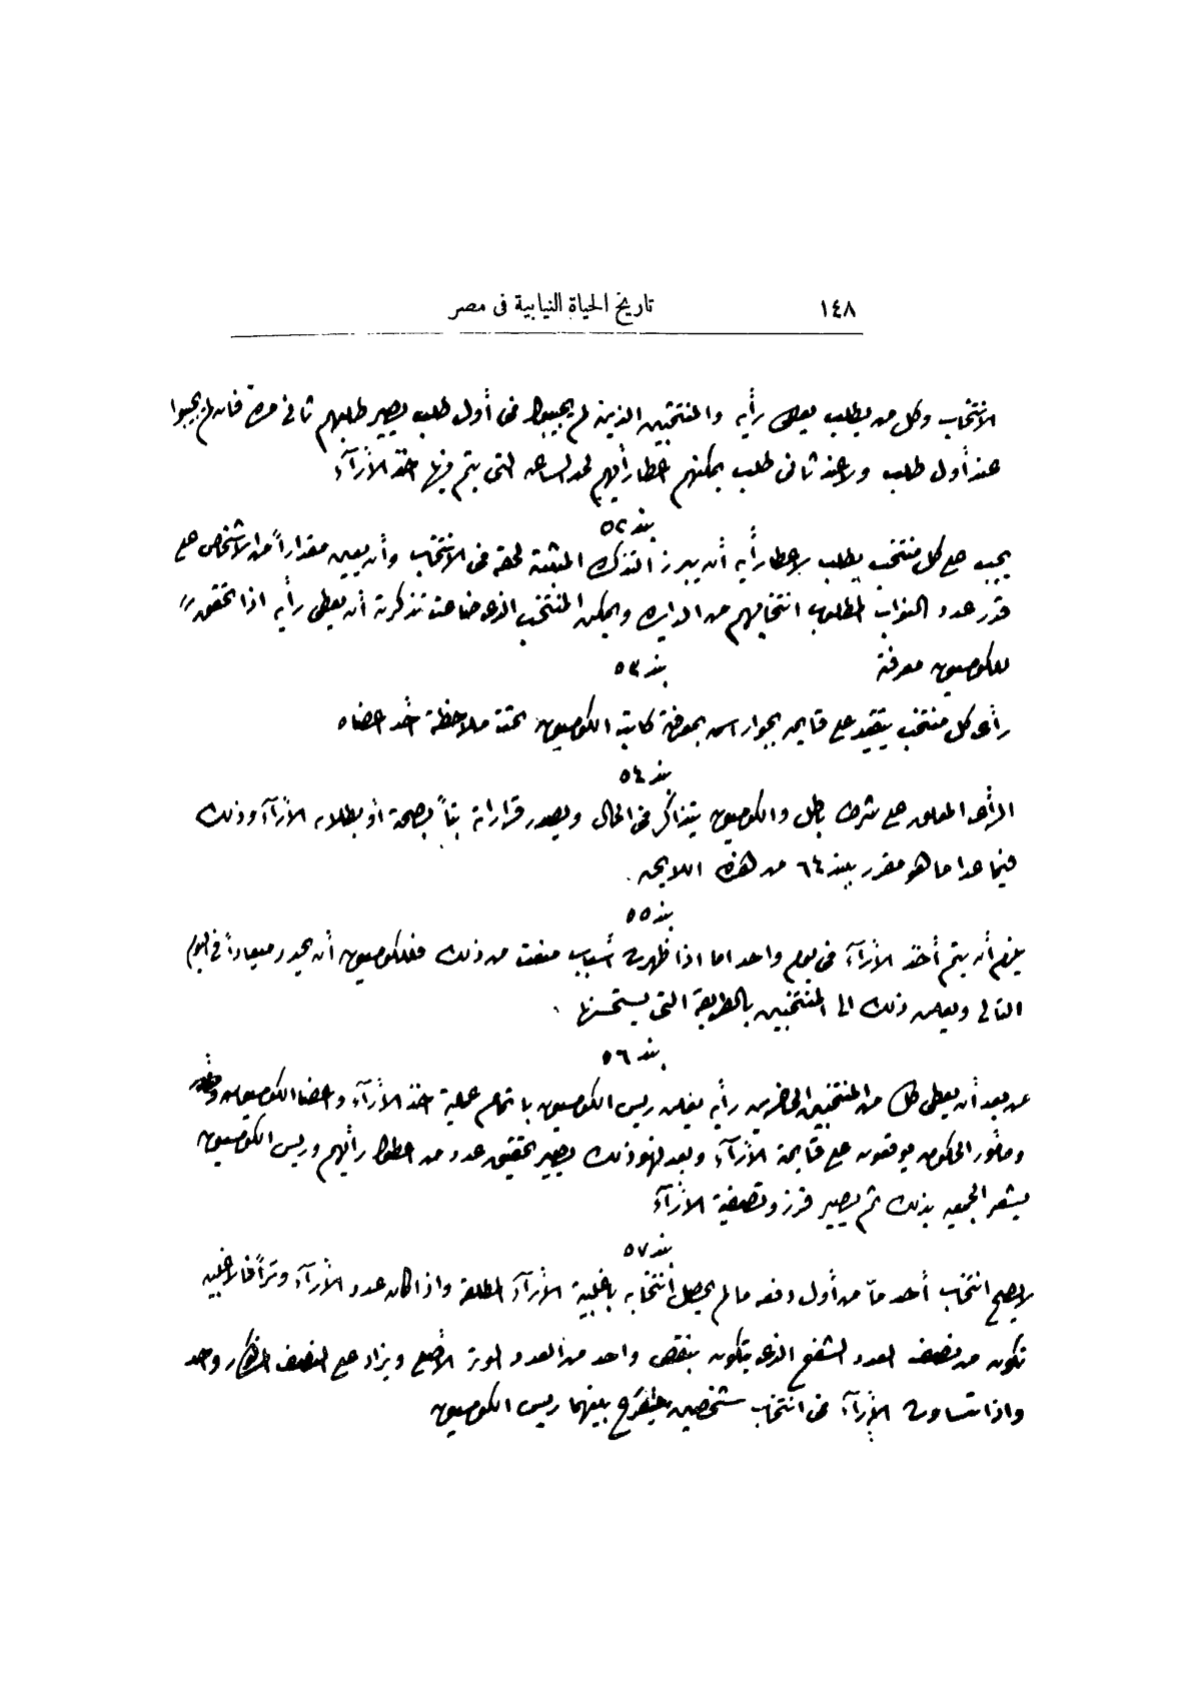 ١٤٨ تاريخ الحياة النيابية فى مصر
الانتخاب وكل من يطلب يعطى رأيه والمنتخبين الذين لم يجيبوا فى أول طلب يصير طلبهم ثانى مرة فان لم يجيبوا
عند أول طلب ولا عند ثانى طلب يمكنهم اعطا رأيهم لحد الساعه التى يتم فيها اخذ الأرآء
بند ٥٢
يجب على كل منتخب يطلب لاعطا رأيه أن يبرز التذكرة المثبتة لحقه فى الانتخاب وأن يعين مقداراً من الاشخاص على
قدر عدد النواب المطلوب انتخابهم من الدايرة ويمكن المنتخب الذى ضاعت تذكرته أن يعطى رأيه اذا تحقق
للكومسيون معرفته
بند ٥٣
رأى كل منتخب يتقيد على قايمه بجوار اسمه بمعرفة كاتب الكومسيون تحت ملاحظة احد اعضاه
بند ٥٤
الرأى المعلق على شرط باطل والكومسيون يتذاكر فى الحال ويصدر قراراته بتاً بصحة أو بطلان الأرآء وذلك
فيما عدا ما هو مقرر ببند ٦٤ من هذه اللايحه .
بند ٥٥
يلزم أن يتم أخذ الأرآء فى يوم واحد اما اذا ظهرت أسباب منعت من ذلك فللكومسيون أن يحدد ميعاداً فى اليوم
التالى ويعلن ذلك الى المنتخبين بالطريقة التى يستحسنها .
بند ٥٦
من بعد أن يعطى كل من المنتخبين الحاضرين رأيه يعلن ريس الكومسيون باتمام عملية اخذ الأرآء واعضا الكومسيون
ومأمور الحكومه يوقعون على قايمة الأرآء وبعد نهو ذلك يصير تحقيق عدد من اعطوا رأيهم وريس الكومسيون
يشعر الجمعيه بذلك ثم يصير فرز وتصفية الأرآء
بند ٥٧
لا يصح انتخاب أحد ما من أول دفعه ما لم يحصل انتخابه باغلبية الأرآء المطلقة واذا كان عدد الأرآء وتراً فالاغلبيه
تكون من نصف العدد الشفع الذى يتكون بنقص واحد من العدد الوتر الأصلى ويزاد على النصف المذكور واحد
واذا تساوت الأرآء فى انتخاب شخصين يقترع بينهما ريس الكومسيون